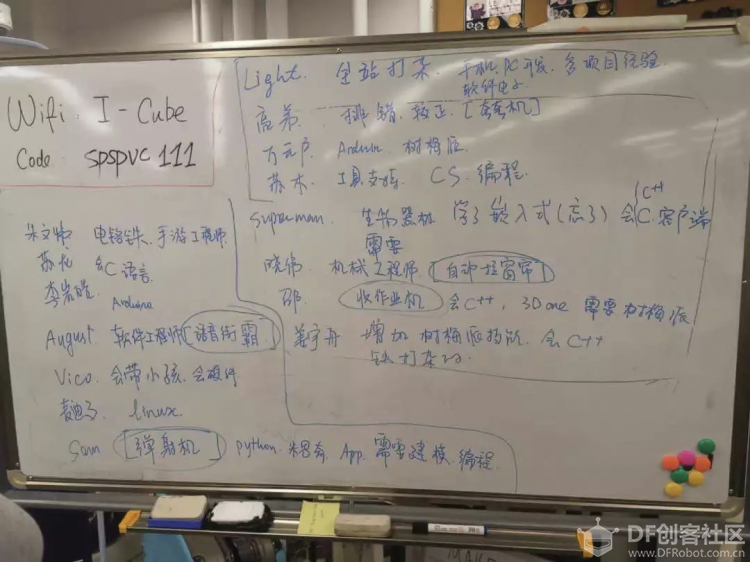 Wifi: I-Cube
Code: spspvc111
Light. 全站打杂. 手机、PC开发、多项目经验
软件电子
排错、校正、[机]
万元户 Arduino 树梅派
苏木 工具支持, CS. 编程.
Superman. 生物 学了嵌入式(忘了) 会C 客户端
C++
需要
晓伟 机械工程师 [自动拉窗帘]
邵 [收作业机] 会C++, 3D one 需要树梅派
姜宇舟 增加树梅派技能. 会C++
打杂
电铬铁、手游工程师
会C语言
Arduino
August 软件工程师 [语音街霸]
Vico 会带小孩、会硬件
linux
Sam [弹射机] python. App. 需要建模. 编程.
DF创客社区
www.DFRobot.com.cn